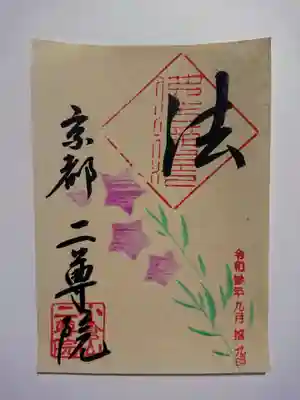 法
京都 二尊院
令和参年 九月 拾九日